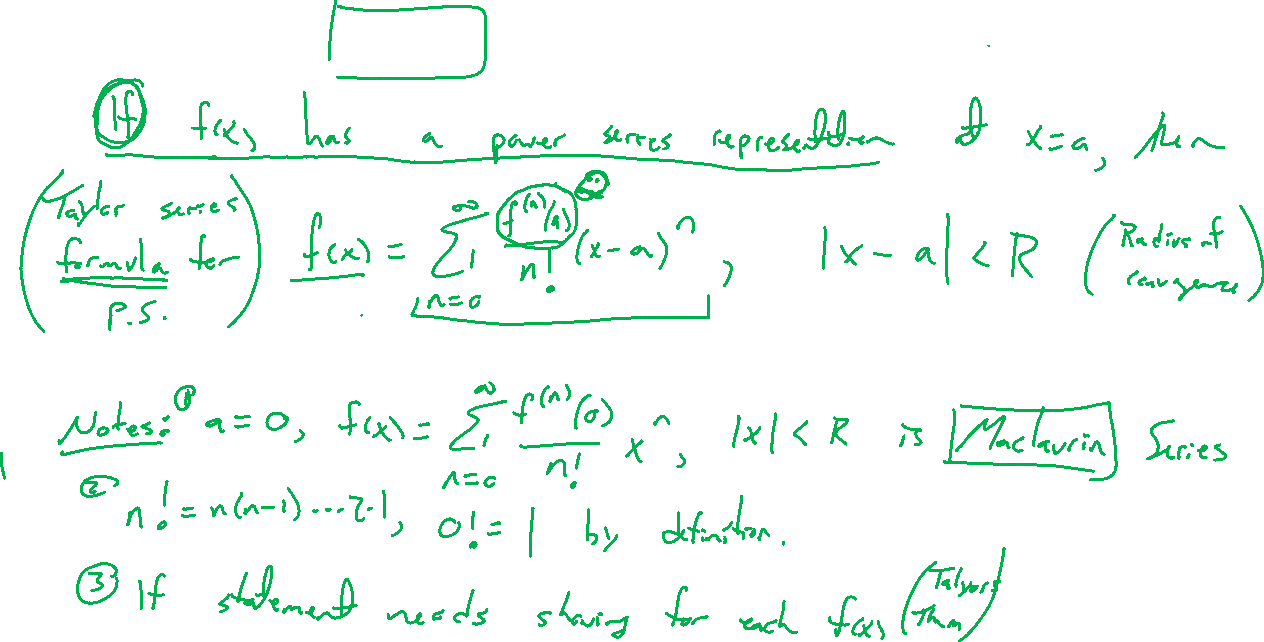 If f(x) has a power series representation at x=a, then
(Taylor series formula for P.S.) f(x) = ∑_{n=0}^{∞} f^{(n)}(a)/n! (x-a)^n, |x-a| < R (Radius of convergence)
Notes: ① a=0, f(x) = ∑_{n=0}^{∞} f^{(n)}(0)/n! x^n, |x| < R is Maclaurin Series
② n! = n(n-1)...2·1, 0! = 1 by definition.
③ If statement needs showing for each f(x) (Talyors Thm)